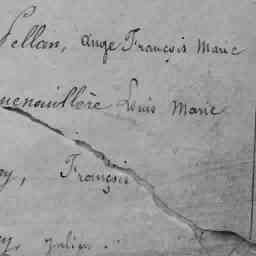 Pellan, ange François Marie
uenouillère Louis Marie
y, François
y, julien